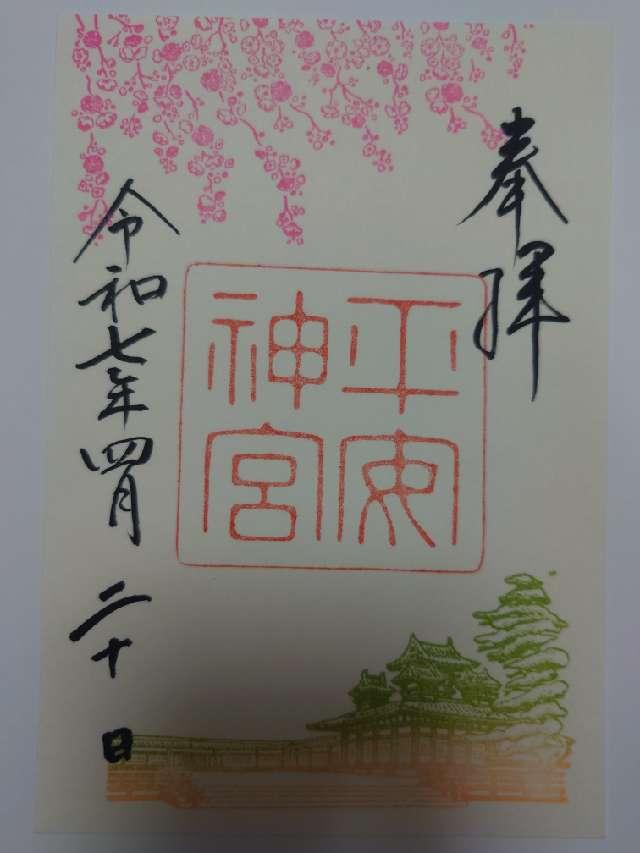 奉拝
平安
神宮
令和七年四月二十日